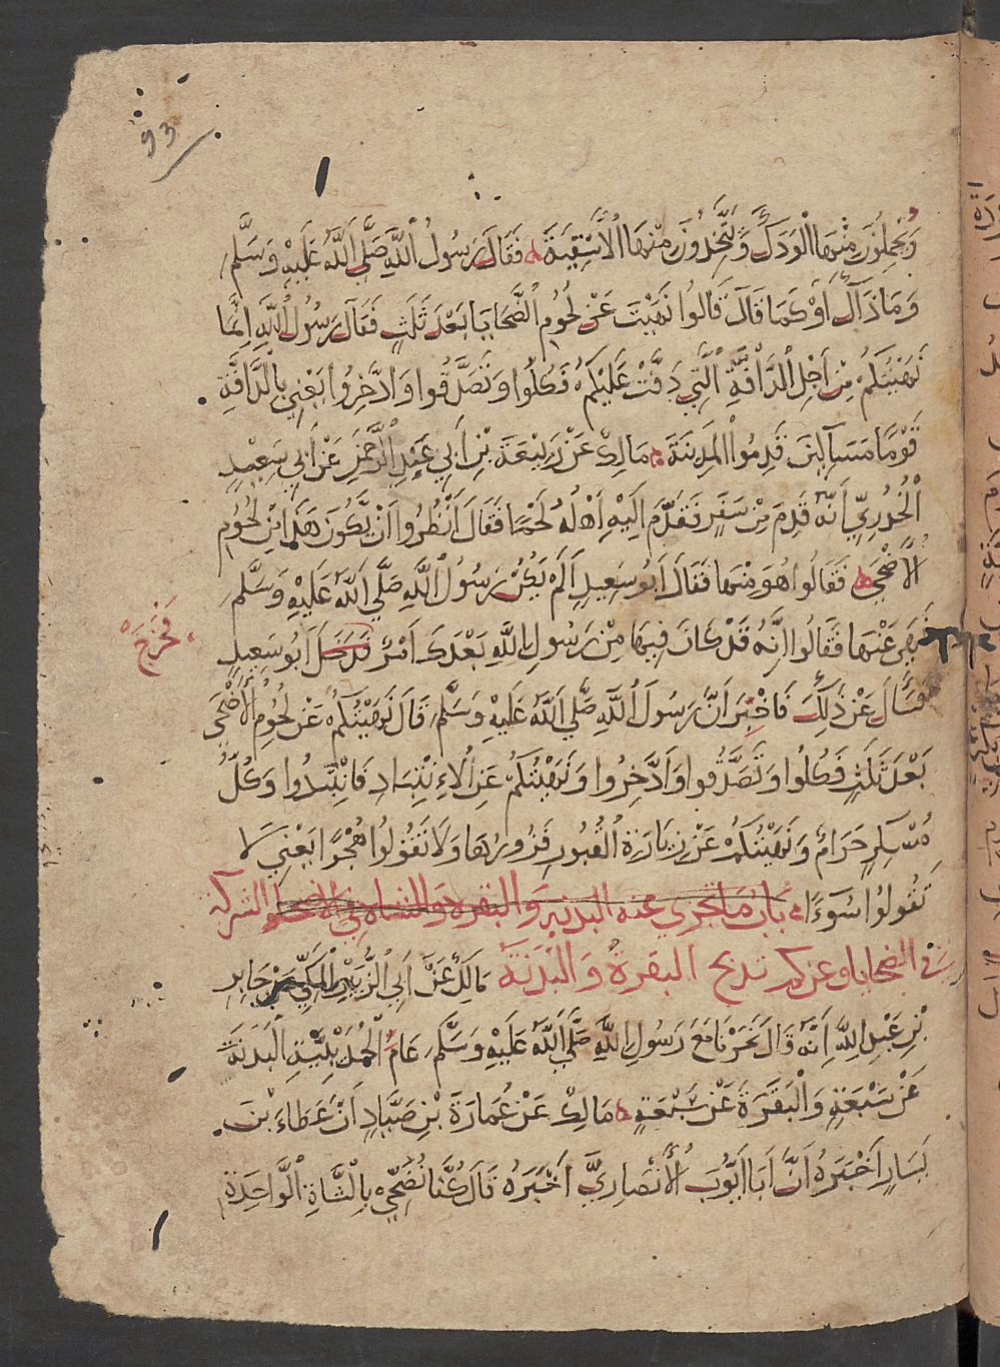 93
وَيَحْمِلُونَ مِنْهَا الْوَدَكَ وَيَتَّخِذُونَ مِنْهَا الْأَسْقِيَةَ فَقَالَ رَسُولُ اللَّهِ صَلَّى اللَّهُ عَلَيْهِ وَسَلَّمَ
وَمَا ذَاكَ أَوْ كَمَا قَالَ قَالُوا نَهَيْتَ عَنْ لُحُومِ الضَّحَايَا بَعْدَ ثَلَثٍ فَقَالَ رَسُولُ اللَّهِ إِنَّمَا
نَهَيْتُكُمْ مِنْ أَجْلِ الدَّافَّةِ الَّتِي دَفَّتْ عَلَيْكُمْ فَكُلُوا وَتَصَدَّقُوا وَادَّخِرُوا يَعْنِي بِالدَّافَّةِ
قَوْمًا مَسَاكِينَ قَدِمُوا الْمَدِينَةَ مَالِكْ عَنْ رَبِيْعَةَ بْنِ أَبِي عَبْدِ الرَّحْمَنِ عَنْ أَبِي سَعِيْدٍ
الْخُدْرِيِّ أَنَّهُ قَدِمَ مِنْ سَفَرٍ فَقَدَّمَ إِلَيْهِ أَهْلُهُ لَحْمًا فَقَالَ انْظُرُوا أَنْ يَكُونَ هَذَا مِنْ لُحُومِ
الْأَضْحَى فَقَالُوا هُوَ مِنْهَا فَقَالَ أَبُو سَعِيدٍ أَلَمْ يَكُنْ رَسُولُ اللَّهِ صَلَّى اللَّهُ عَلَيْهِ وَسَلَّمَ
نَهَى عَنْهَا فَقَالُوا إِنَّهُ قَدْ كَانَ فِيهَا مِنْ رَسُولِ اللَّهِ بَعْدَكَ أَمْرٌ فَدَخَلَ أَبُو سَعِيدٍ
فَخَرَجَ
فَسَأَلَ عَنْ ذَلِكَ فَأُخْبِرَ أَنَّ رَسُولَ اللَّهِ صَلَّى اللَّهُ عَلَيْهِ وَسَلَّمَ قَالَ نَهَيْتُكُمْ عَنْ لُحُومِ الْأَضْحَى
بَعْدَ ثَلَثٍ فَكُلُوا وَتَصَدَّقُوا وَادَّخِرُوا وَنَهَيْتُكُمْ عَنِ الْاِنْتِبَاذِ فَانْتَبِذُوا وَكُلُّ
مُسْكِرٍ حَرَامٌ وَنَهَيْتُكُمْ عَنْ زِيَارَةِ الْقُبُورِ فَزُورُوهَا وَلَا تَقُولُوا هُجْرًا يَعْنِي لَا
تَقُولُوا سُوءًا بَابُ مَا تُجْزِي عَنْهُ الْبَدَنَةِ وَالْبَقَرَةِ وَالشَّاةِ فِي الشركة
في الضحايا وعن كم تذبح البقرة وَالْبَدَنَة مَالِكٌ عَنْ أَبِي الزُّبَيْرِ الْمَكِّيِّ عَنْ جَابِرِ
بْنِ عَبْدِ اللَّهِ أَنَّهُ قَالَ نَحَرْنَا مَعَ رَسُولِ اللَّهِ صَلَّى اللَّهُ عَلَيْهِ وَسَلَّمَ عَامَ الْحُدَيْبِيَّةِ الْبَدَنَةَ
عَنْ سَبْعَةٍ وَالْبَقَرَةَ عَنْ سَبْعَةٍ مَالِكْ عَنْ عُمَارَةَ بْنِ صَيَّادٍ أَنَّ عَطَاءَ بْنَ
يَسَارٍ أَخْبَرَهُ أَنَّ أَبَا أَيُّوبَ الْأَنْصَارِيَّ أَخْبَرَهُ قَالَ كُنَّا نُضَحِّي بِالشَّاةِ الْوَاحِدَةِ